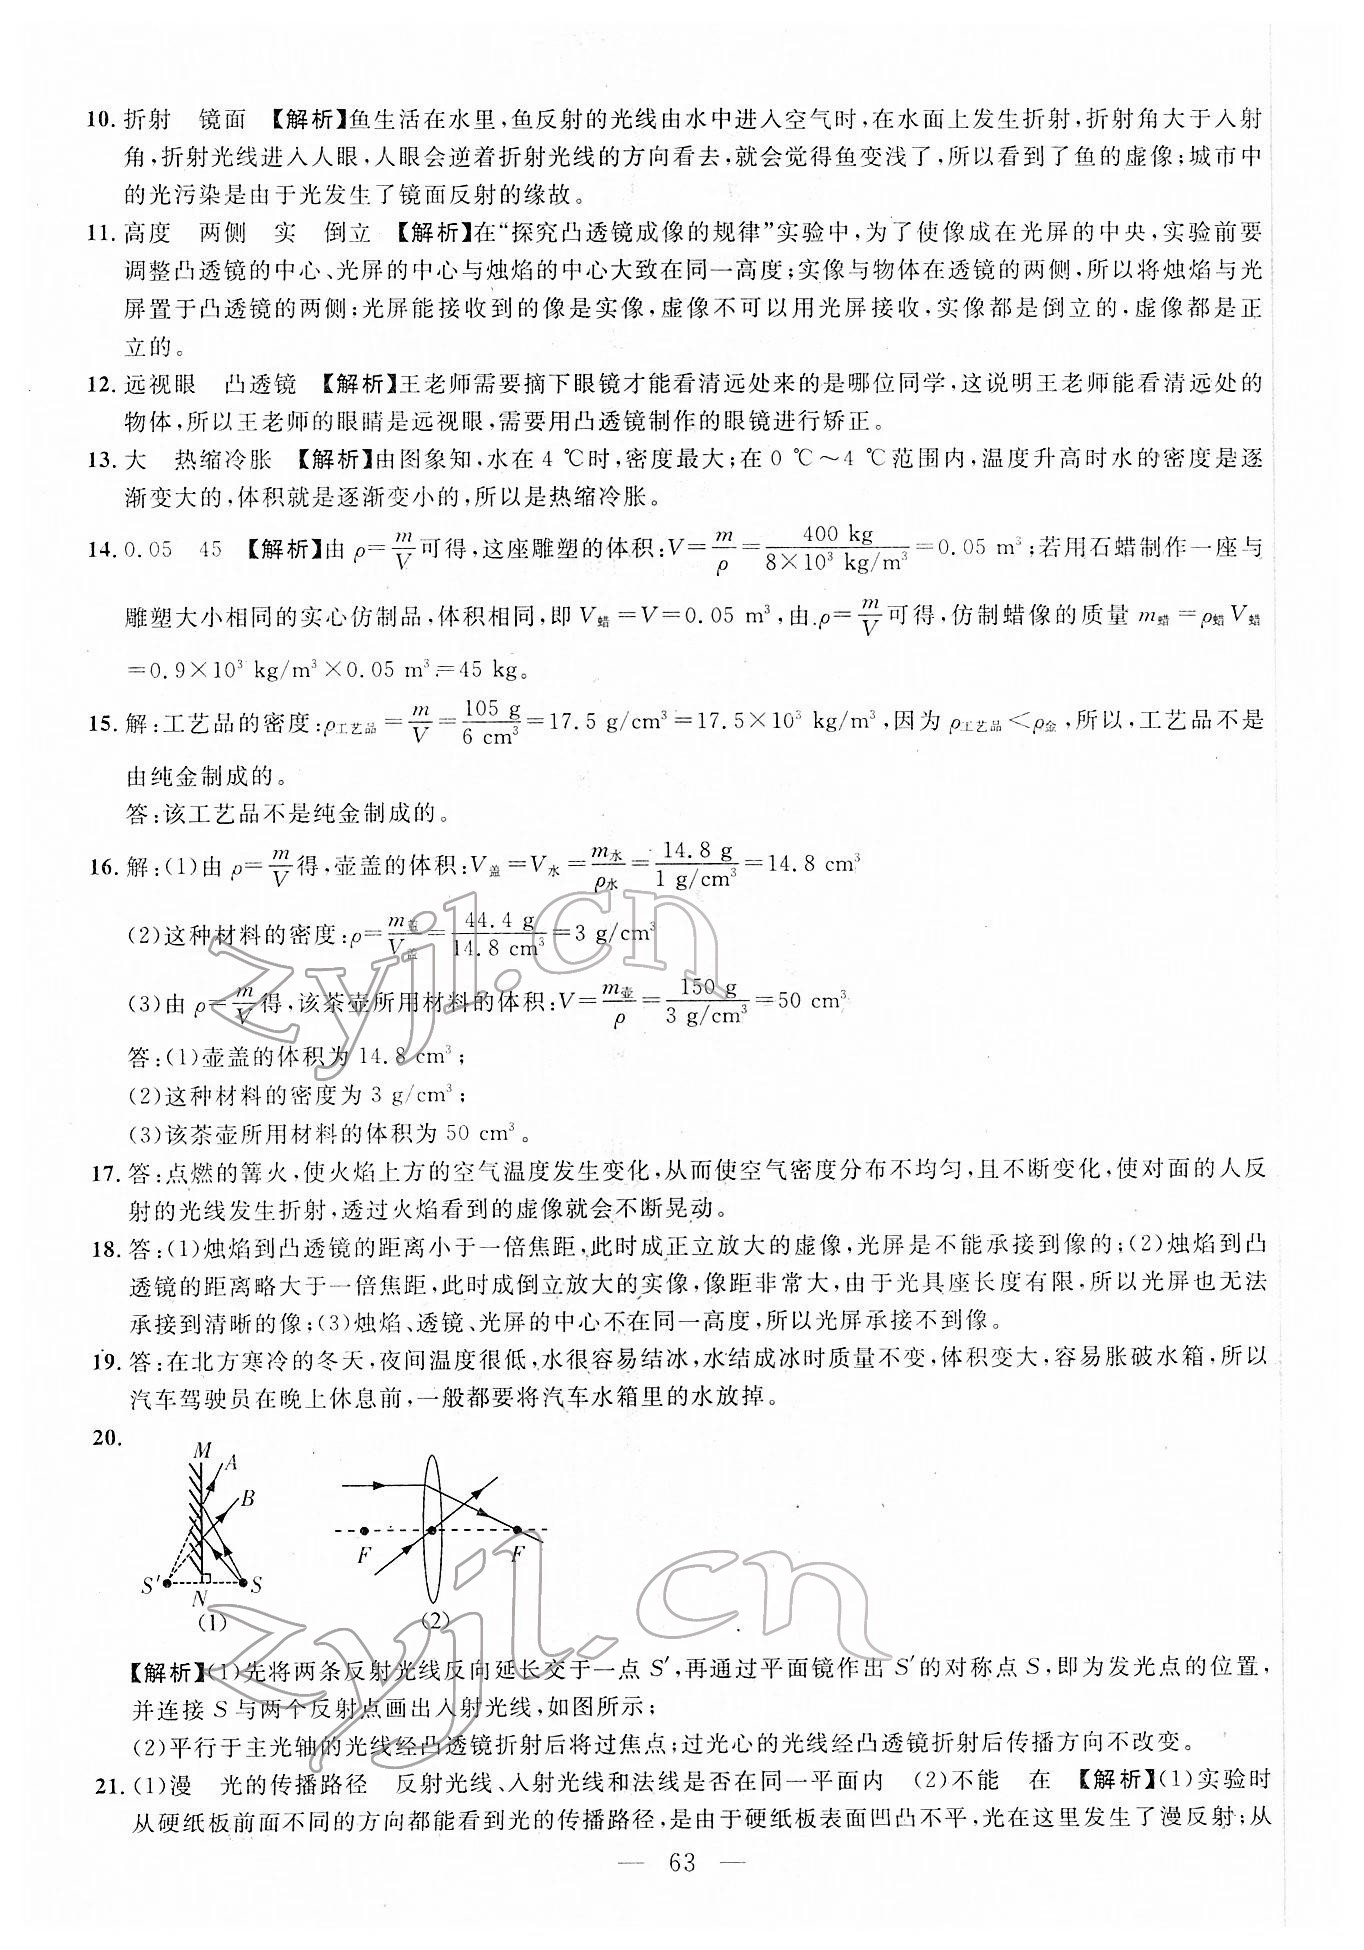 10. 折射　镜面　【解析】鱼生活在水里,鱼反射的光线由水中进入空气时,在水面上发生折射,折射角大于入射
角,折射光线进入人眼,人眼会逆着折射光线的方向看去,就会觉得鱼变浅了,所以看到了鱼的虚像;城市中
的光污染是由于光发生了镜面反射的缘故。
11. 高度　两侧　实　倒立　【解析】在“探究凸透镜成像的规律”实验中,为了使像成在光屏的中央,实验前要
调整凸透镜的中心、光屏的中心与烛焰的中心大致在同一高度;实像与物体在透镜的两侧,所以将烛焰与光
屏置于凸透镜的两侧;光屏能接收到的像是实像,虚像不可以用光屏接收,实像都是倒立的,虚像都是正
立的。
12. 远视眼　凸透镜　【解析】王老师需要摘下眼镜才能看清远处来的是哪位同学,这说明王老师能看清远处的
物体,所以王老师的眼睛是远视眼,需要用凸透镜制作的眼镜进行矫正。
13. 大　热缩冷胀　【解析】由图象知,水在 4 ℃时,密度最大;在 0 ℃～4 ℃范围内,温度升高时水的密度是逐
渐变大的,体积就是逐渐变小的,所以是热缩冷胀。
14. 0.05　45　【解析】由 ρ=m/V可得,这座雕塑的体积:V=m/ρ=400 kg/8×10³ kg/m³=0.05 m³;若用石蜡制作一座与
雕塑大小相同的实心仿制品,体积相同,即 V蜡=V=0.05 m³,由 ρ=m/V可得,仿制蜡像的质量 m蜡=ρ蜡V蜡
=0.9×10³ kg/m³×0.05 m³=45 kg。
15. 解:工艺品的密度:ρ工艺品=m/V=105 g/6 cm³=17.5 g/cm³=17.5×10³ kg/m³,因为 ρ工艺品<ρ金,所以,工艺品不是
由纯金制成的。
答:该工艺品不是纯金制成的。
16. 解:(1)由 ρ=m/V得,壶盖的体积:V盖=V水=m水/ρ水=14.8 g/1 g/cm³=14.8 cm³
(2)这种材料的密度:ρ=m盖/V盖=44.4 g/14.8 cm³=3 g/cm³
(3)由 ρ=m/V得,该茶壶所用材料的体积:V=m壶/ρ=150 g/3 g/cm³=50 cm³
答:(1)壶盖的体积为 14.8 cm³;
(2)这种材料的密度为 3 g/cm³;
(3)该茶壶所用材料的体积为 50 cm³。
17. 答:点燃的篝火,使火焰上方的空气温度发生变化,从而使空气密度分布不均匀,且不断变化,使对面的人反
射的光线发生折射,透过火焰看到的虚像就会不断晃动。
18. 答:(1)烛焰到凸透镜的距离小于一倍焦距,此时成正立放大的虚像,光屏是不能承接到像的;(2)烛焰到凸
透镜的距离略大于一倍焦距,此时成倒立放大的实像,像距非常大,由于光具座长度有限,所以光屏也无法
承接到清晰的像;(3)烛焰、透镜、光屏的中心不在同一高度,所以光屏承接不到像。
19. 答:在北方寒冷的冬天,夜间温度很低,水很容易结冰,水结成冰时质量不变,体积变大,容易胀破水箱,所以
汽车驾驶员在晚上休息前,一般都要将汽车水箱里的水放掉。
20.
M
A
B
S′
N
S
(1)
F
F
(2)
【解析】(1)先将两条反射光线反向延长交于一点 S′,再通过平面镜作出 S′的对称点 S,即为发光点的位置,
并连接 S 与两个反射点画出入射光线,如图所示;
(2)平行于主光轴的光线经凸透镜折射后将过焦点;过光心的光线经凸透镜折射后传播方向不改变。
21. (1)漫　光的传播路径　反射光线、入射光线和法线是否在同一平面内　(2)不能　在　【解析】(1)实验时
从硬纸板前面不同的方向都能看到光的传播路径,是由于硬纸板表面凹凸不平,光在这里发生了漫反射;从
— 63 —
zyjl.cn
zyjl.cn